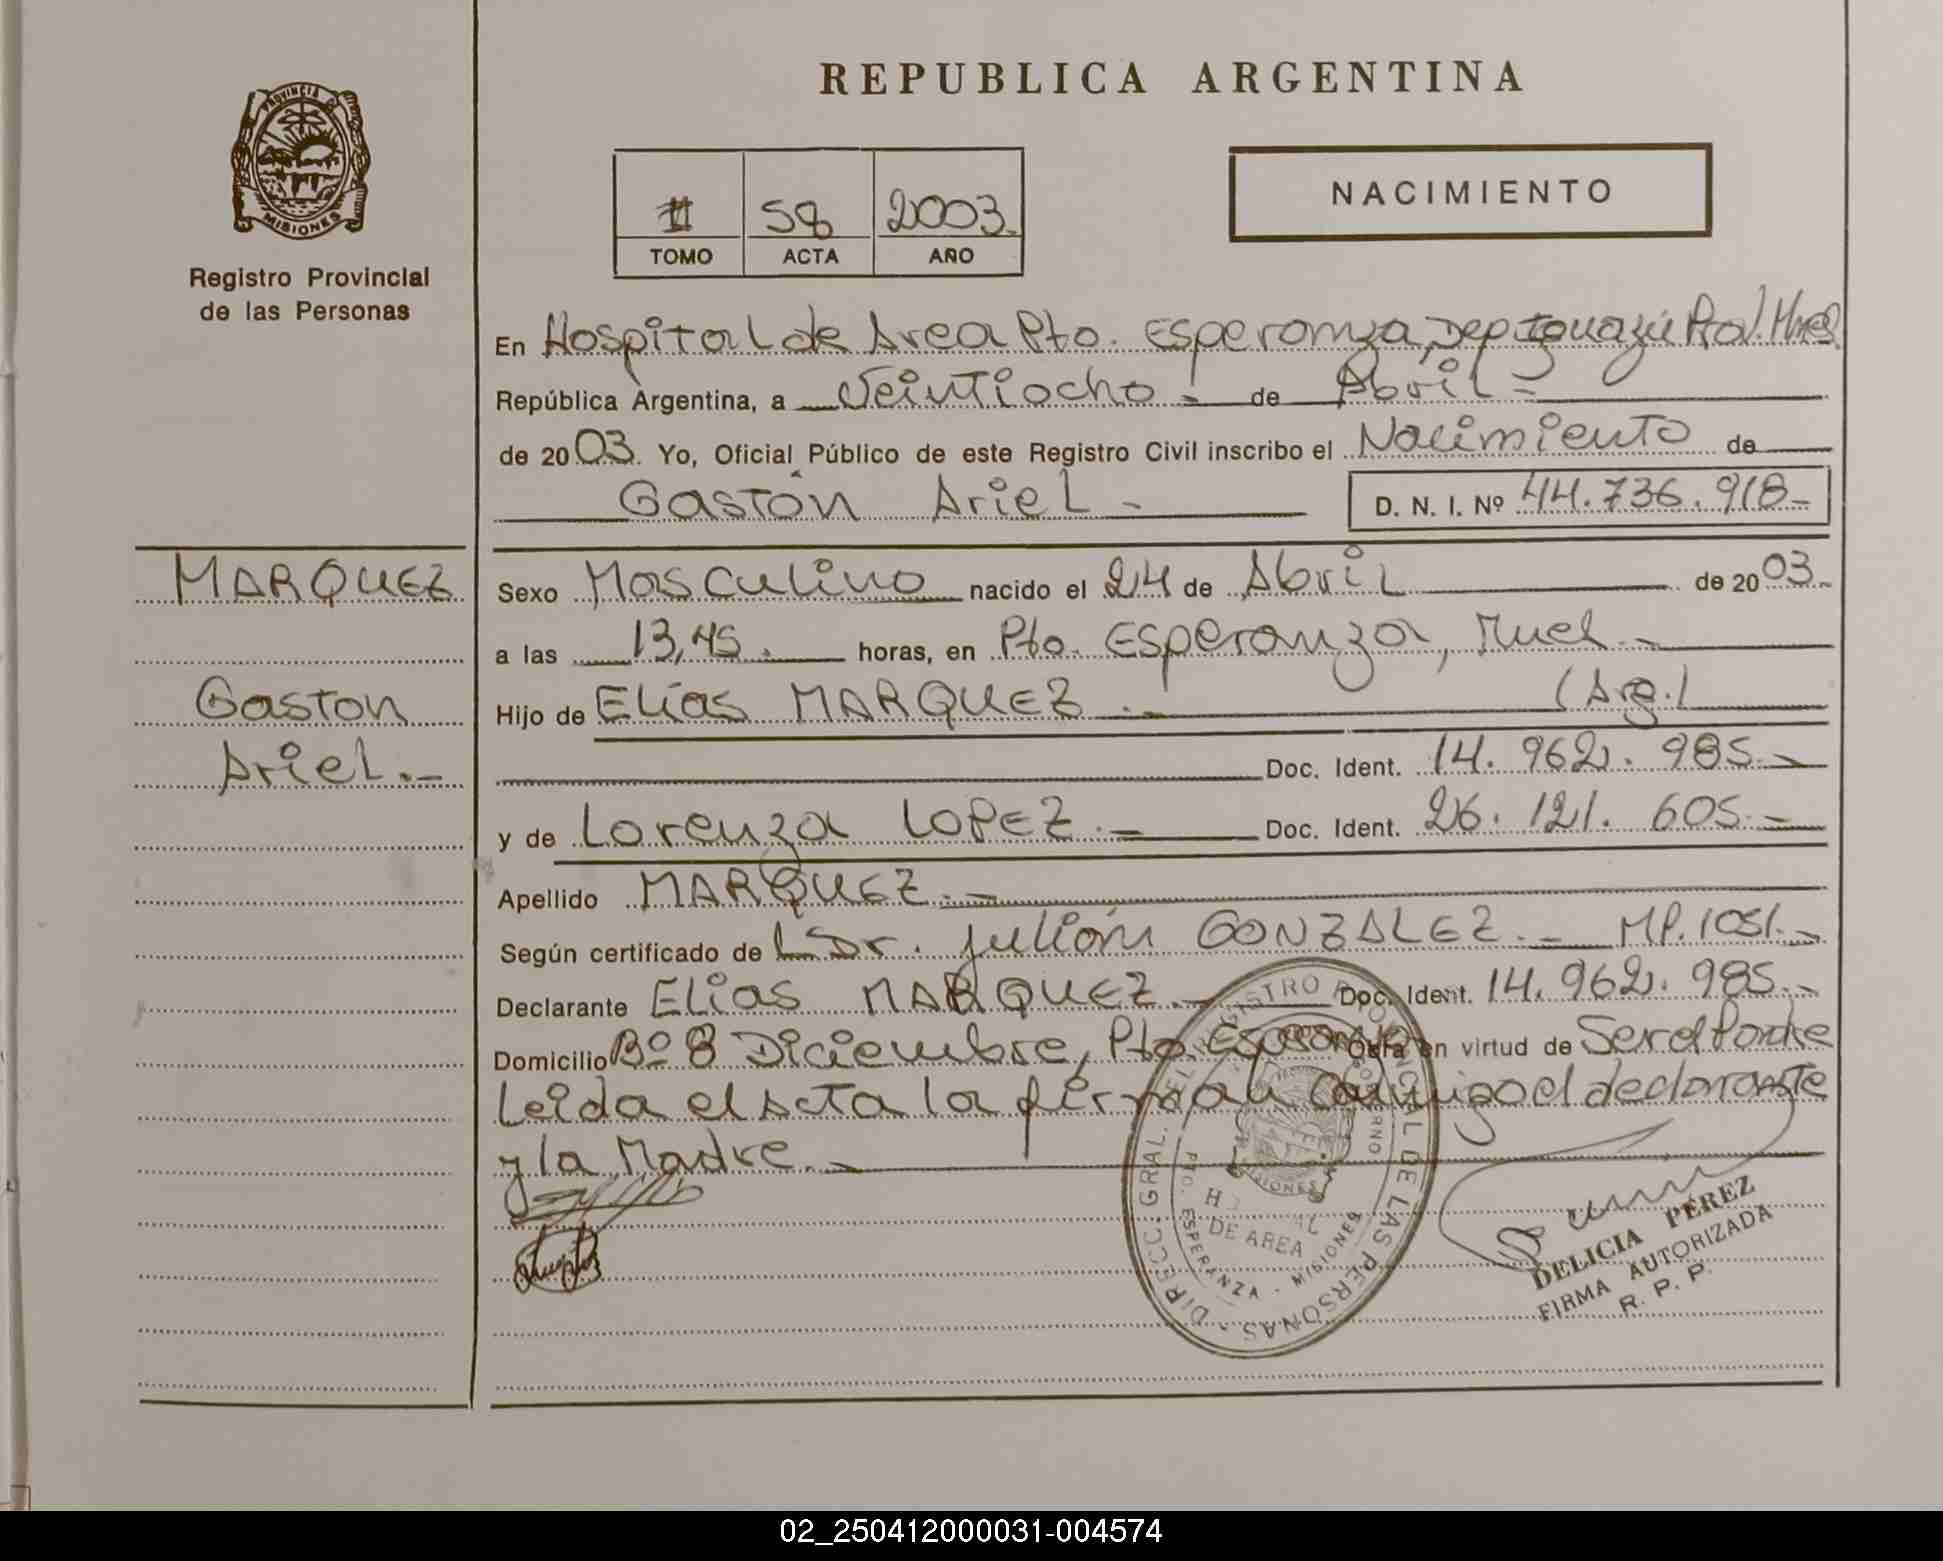 REPUBLICA ARGENTINA
PROVINCIA DE
MISIONES
Registro Provincial
de las Personas
II 58 2003.
TOMO ACTA AÑO
NACIMIENTO
En Hospital de Area Pto. Esperanza, Dep Iguazú Prov. Mnes.
República Argentina, a Veintiocho.- de Abril-
de 2003. Yo, Oficial Público de este Registro Civil inscribo el Nacimiento de
Gastón Ariel- D. N. I. Nº 44.736.918-
MARQUEZ
Gaston
Ariel.-
Sexo Masculino nacido el 24 de Abril de 2003.
a las 13,45. horas, en Pto. Esperanza, Mnes.-
Hijo de Elías MARQUEZ.- (Arg.)
Doc. Ident. 14.962.985.-
y de Lorenza LOPEZ.- Doc. Ident. 26.121.605.-
Apellido MARQUEZ.-
Según certificado de Dr. Julián GONZALEZ.- MP.1051.-
Declarante Elias MARQUEZ.- Doc. Ident. 14.962.985.-
Domicilio Bº 8 Diciembre, Pto. Esperanza Obra en virtud de Ser el Padre
Leida el Acta la firman conmigo el declarante
y la Madre.-
DIRECC. GRAL. DEL REGISTRO PROVINCIAL DE LAS PERSONAS
DE AREA
PTO. ESPERANZA - MISIONES
DELICIA PEREZ
FIRMA AUTORIZADA
R. P. P.
02_250412000031-004574